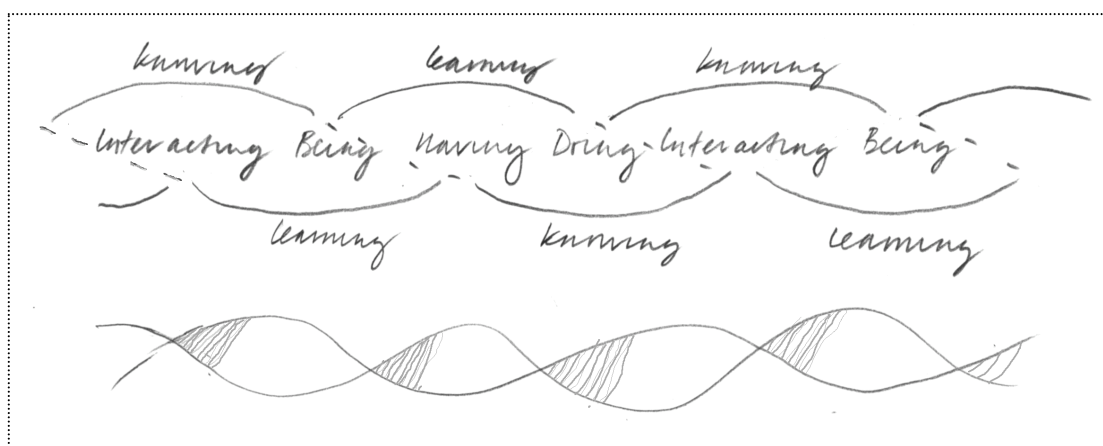 knowing learning knowing
Interacting Being Having Doing Interacting Being
learning knowing learning